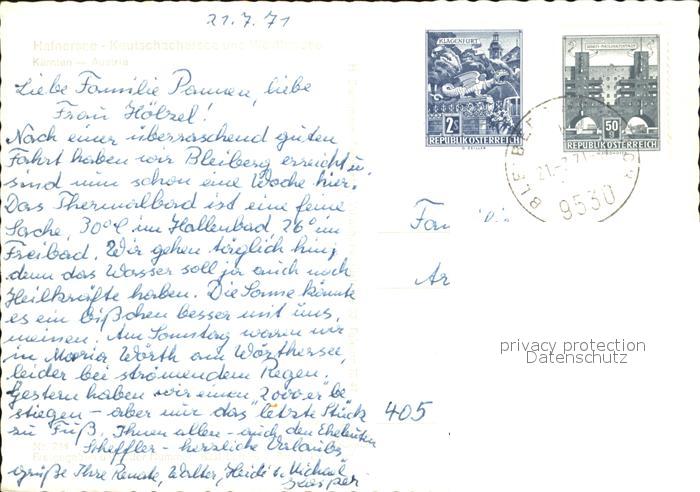 21.7.71
Hafnersee - Keutschachersee und Wörthersee
Kärnten — Austria
Liebe Familie Pannen, liebe
Frau Hölzel!
Nach einer überraschend guten
Fahrt haben wir Bleiberg erreicht u.
sind nun schon eine Woche hier.
Das Thermalbad ist eine feine
Sache, 30°C im Hallenbad, 26° im
Freibad. Wir gehen täglich hin,
denn das Wasser soll ja auch noch
Heilkräfte haben. Die Sonne könnte
es ein bißchen besser mit uns
meinen. Am Sonntag waren wir
in Maria Wörth am Wörthersee,
leider bei strömendem Regen.
Gestern haben wir einen "2000er" be-
stiegen - aber nur das letzte Stück
zu Fuß. Ihnen allen - auch den Eheleuten
Scheffler - herzliche Urlaubs-
grüße Ihre Renate, Walter, Heidi u. Michael
KLAGENFURT
2 S
REPUBLIK ÖSTERREICH
50
REPUBLIK ÖSTERREICH
21.-7.71
9530
Fam
405
privacy protection
Datenschutz